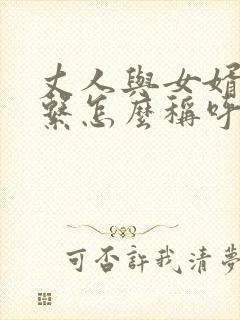 丈人與女婿
繫怎麼稱呼
可否許我清夢